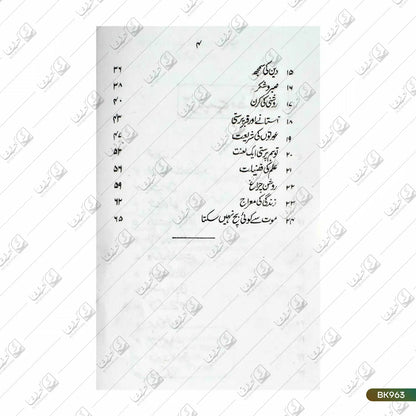 ۴
۱۵ دین کی سمجھ ۳۶
۱۶ صبر و شکر ۳۸
۱۷ روشنی کی کرن ۴۰
۱۸ آستانے اور قبر پرستی ۴۳
۱۹ عورتوں کی شریعت ۴۷
۲۰ توہم پرستی ایک لعنت ۵۲
۲۱ علم کی فضیلت ۵۶
۲۲ روشن چراغ ۵۹
۲۳ زندگی کی معراج ۶۲
۲۴ موت سے کوئی بچ نہیں سکتا ۶۵
BK963